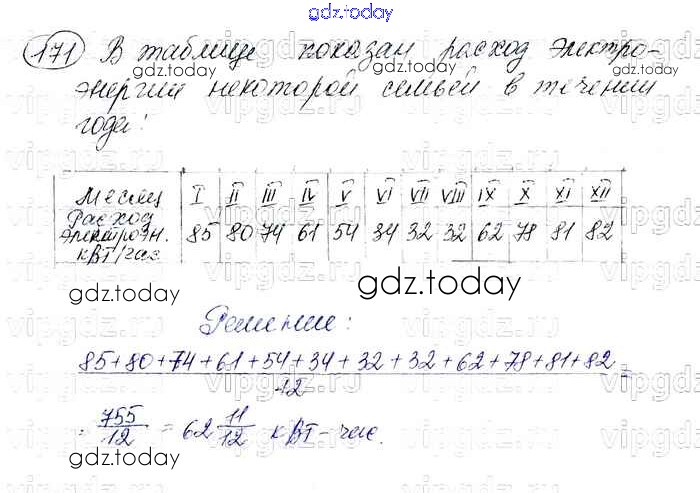 gdz.today
171 В таблице показан расход электро-
энергии некоторой семьёй в течении
года:
Месяц I II III IV V VI VII VIII IX X XI XII
Расход
электроэн. 85 80 74 61 54 34 32 32 62 78 81 82
кВт/час
gdz.today
Решение:
85+80+74+61+54+34+32+32+62+78+81+82
12
= 755/12 = 62 11/12 кВт-час.
gdz.today